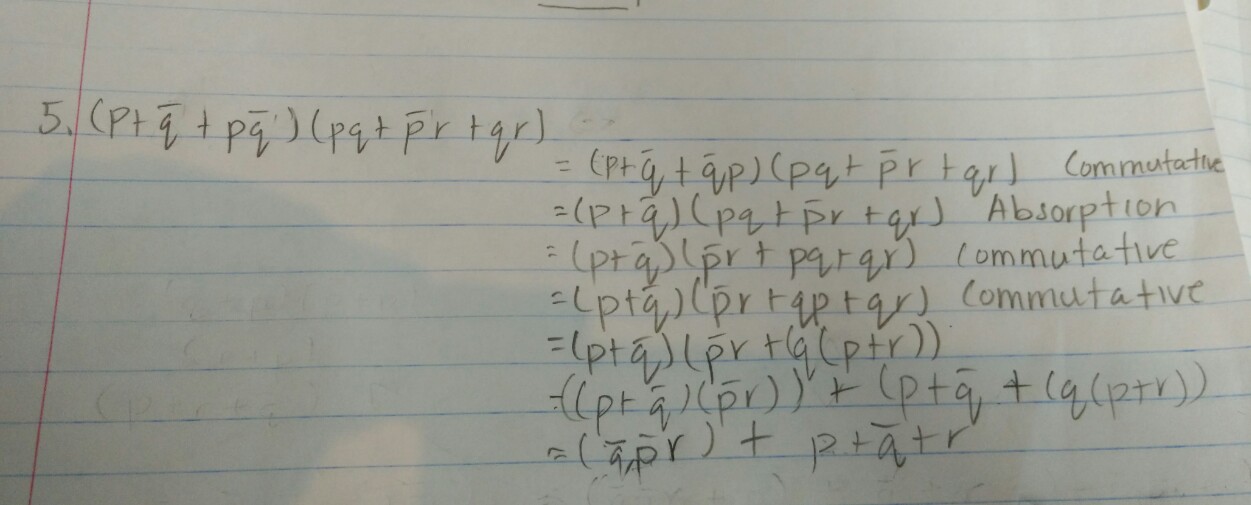 5. (p+q̅ + pq̅)(pq + p̅r + qr)
= (p+q̅ + q̅p)(pq + p̅r + qr) Commutative
= (p+q̅)(pq + p̅r + qr) Absorption
= (p+q̅)(p̅r + pq+qr) Commutative
= (p+q̅)(p̅r +qp+qr) Commutative
= (p+q̅)(p̅r +(q(p+r))
=((p+q̅)(p̅r)) + (p+q̅ + (q(p+r))
= (q̅p̅r) + p+q̅+r